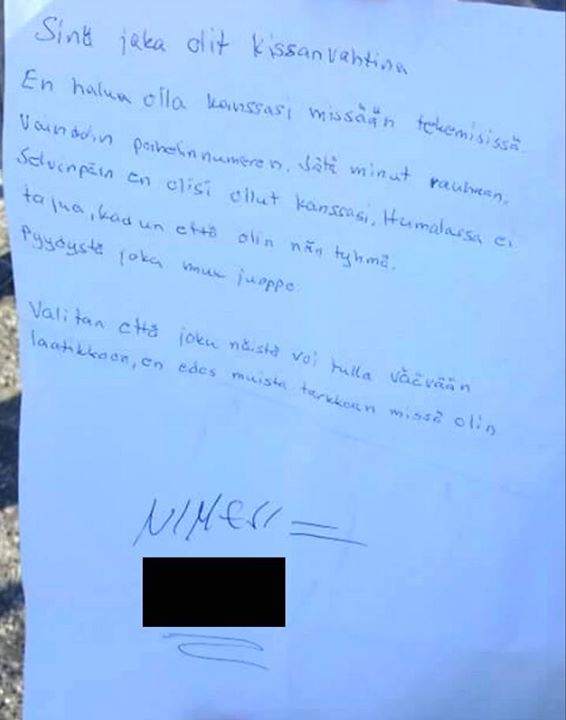 Sinä jaka olit kissanvahtina
En halua olla kanssasi missään tekemisissä.
Vaihdoin puhelinnumeren. Jätä minut rauhaan.
Selvinpäin en olisi ollut kanssasi. Humalassa ei
tajua, kadun että olin nän tyhmä.
joka muu juoppo
Valitan että joku näistä voi tulla väävään
laatikkoon, en edes muista tarkkaan missä olin
NIMESI =